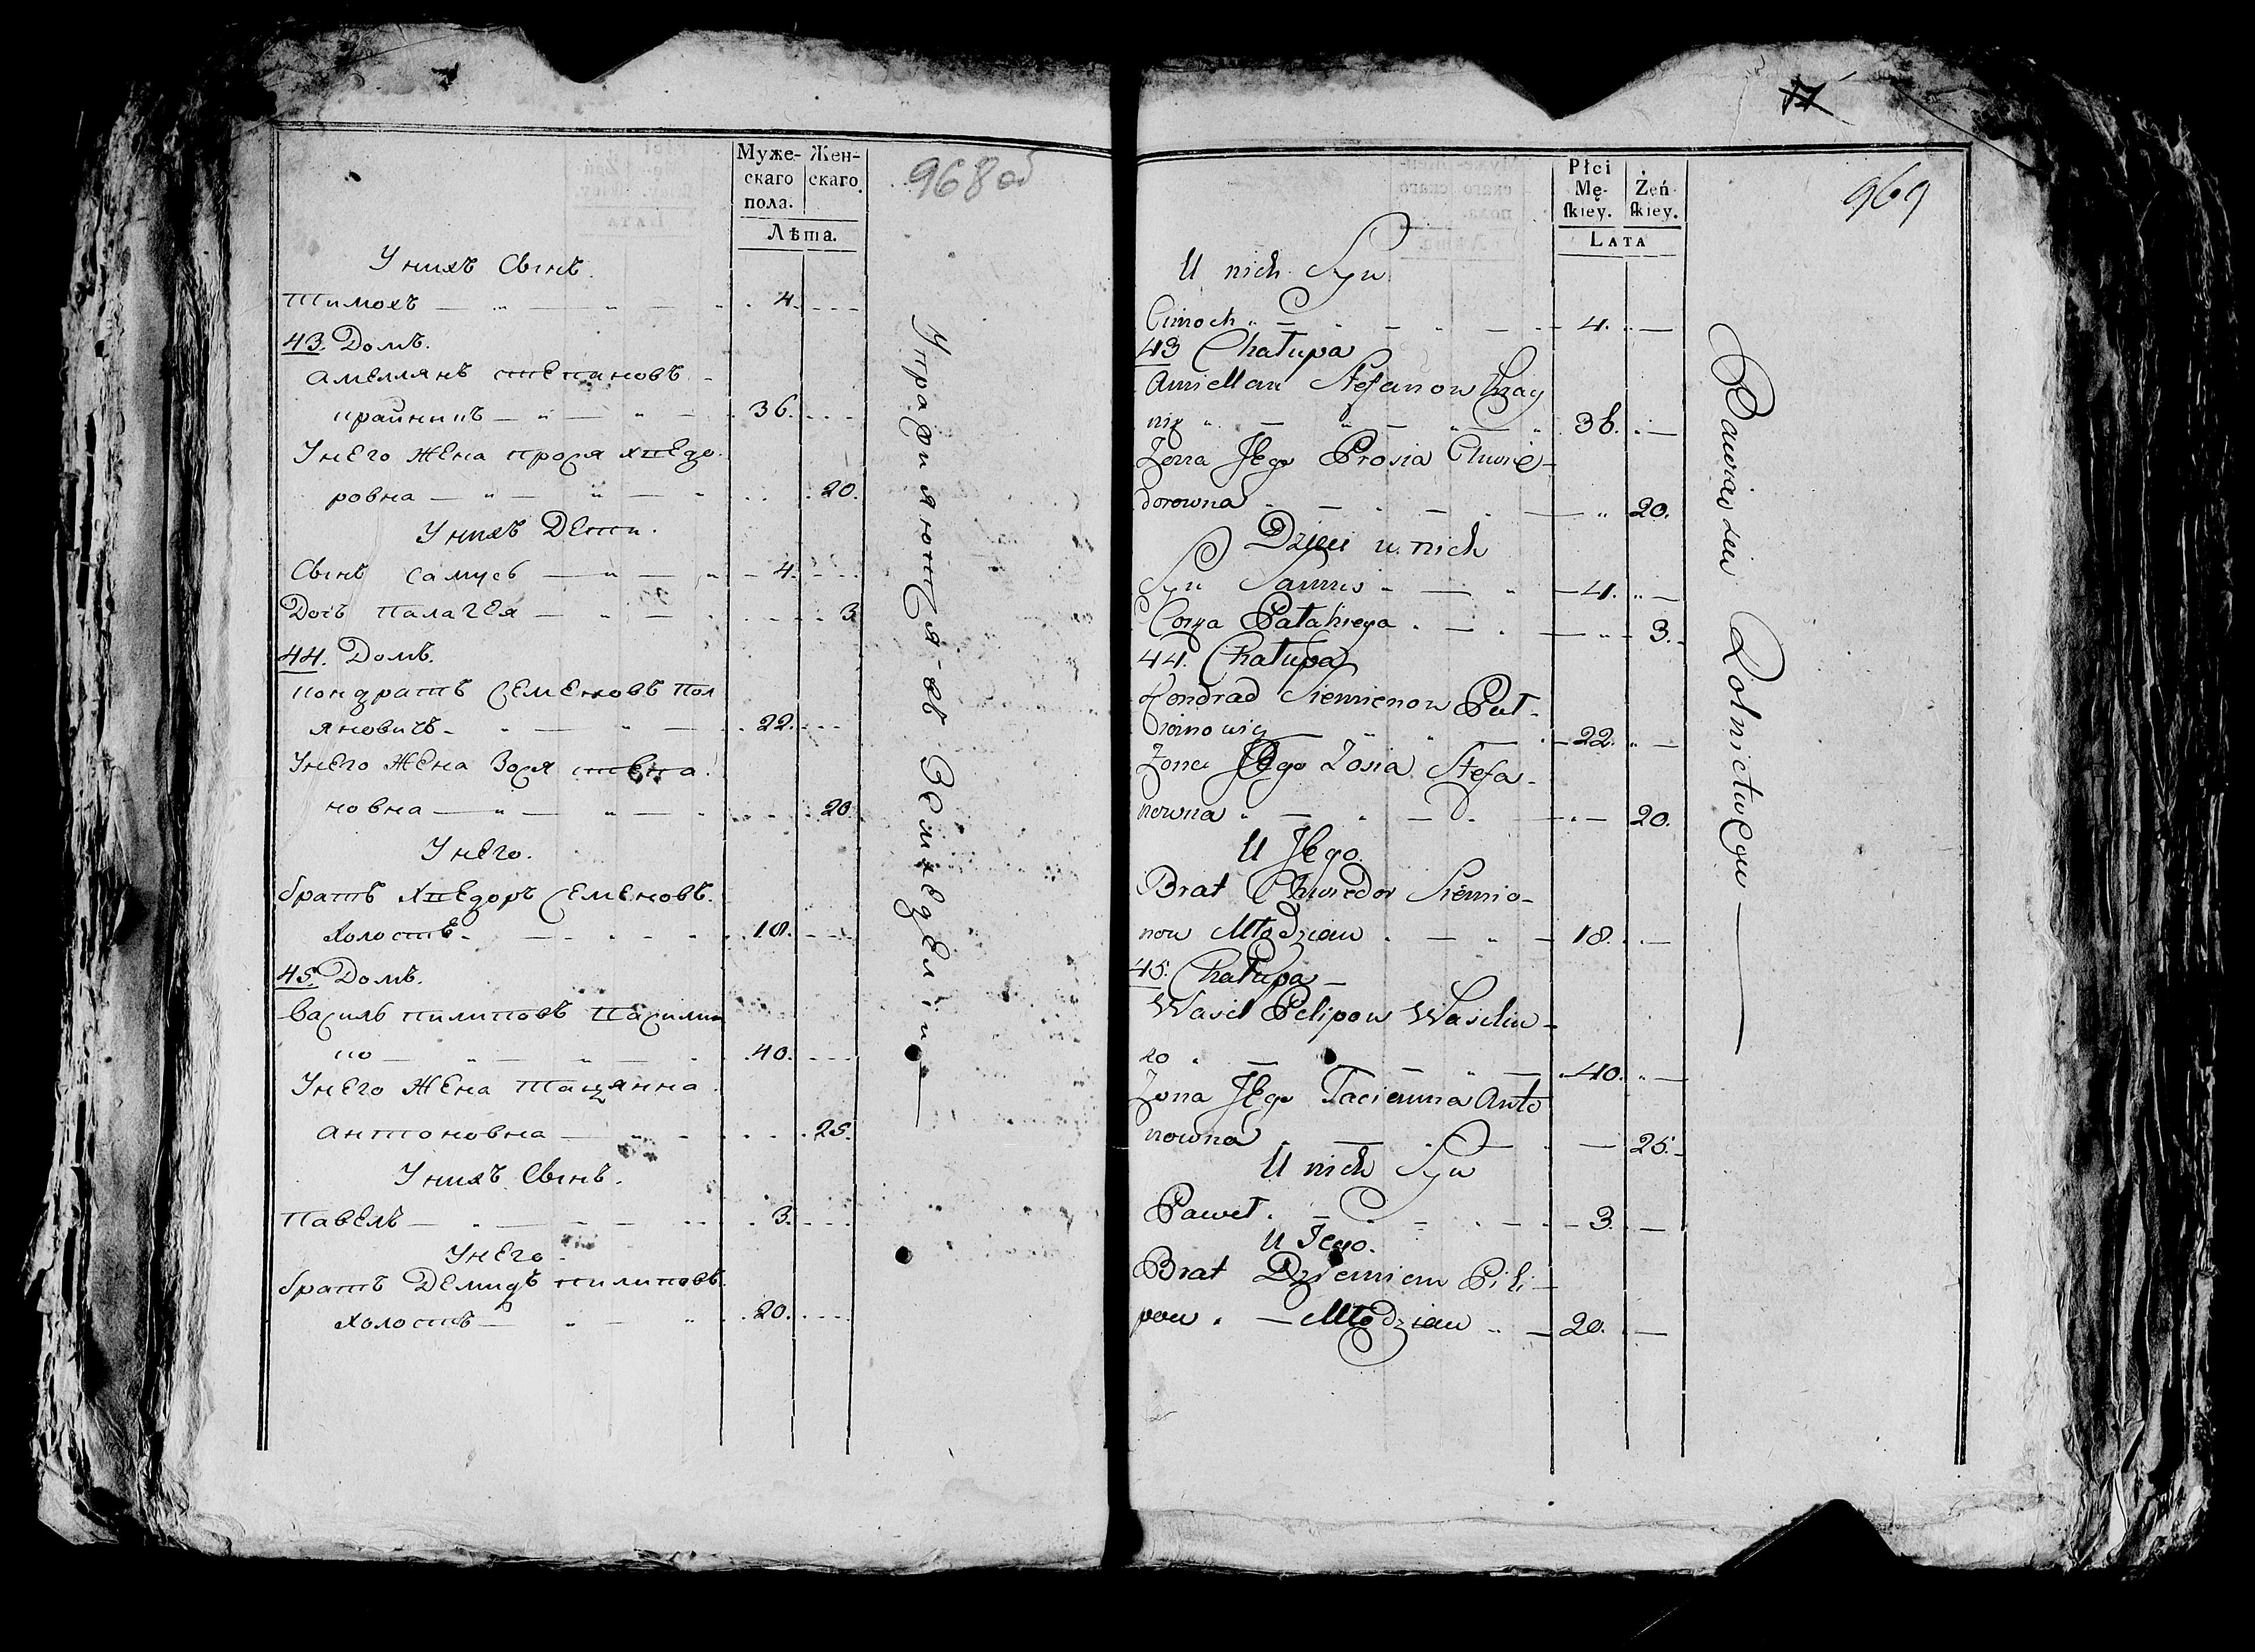 Муже-
скаго
пола.
Жен-
скаго.
Лѣта.
968 об
У нихъ Сынъ.
Тимохъ 4.
43. Домъ.
Амеллянъ Степановъ
крайникъ 36.
У него Жена прося хведо-
ровна 20.
У нихъ Дети.
Сынъ Самусь 4.
Дочь Палагея 3
44. Домъ.
кондратъ Семеновъ Пол
яновичъ 22.
У него Жена Зося степа-
новна 20.
У него.
братъ Хведоръ Семеновъ.
холостъ 18.
45. Домъ.
Василь пилиповъ Василин
ко 40.
У него Жена Тацянна
антоновна 25.
У нихъ Сынъ.
Павелъ 3.
У него
братъ Демидъ пилиповъ.
холостъ 20.
Упражняются въ Земледелiи
969
Płci
Mę-
ſkiey.
Żeń-
ſkiey.
LATA
U nich Syn
Cimoch 4.
43 Chałupa
Amellan Stefanow Kray
nik 36.
Żona Jego Prosia Chwie-
dorowna 20.
Dzieci u nich
Syn Samus 4.
Corka Pałahieya 3.
44. Chałupa
Kondrad Siemienow Poł-
ianowicz 22.
Żona Jego Zosia Stefa-
nowna 20.
U Jego.
Brat Chwiedor Siemio-
now Młodzian 18.
45. Chałupa
Wasil Pilipow Wasilin-
ko 40.
Żona Jego Tacianna Anto
nowna 25.
U nich Syn
Paweł 3.
U Jego.
Brat Dziemian Pili-
pow Młodzian 20.
Bawią się Rolnictwem